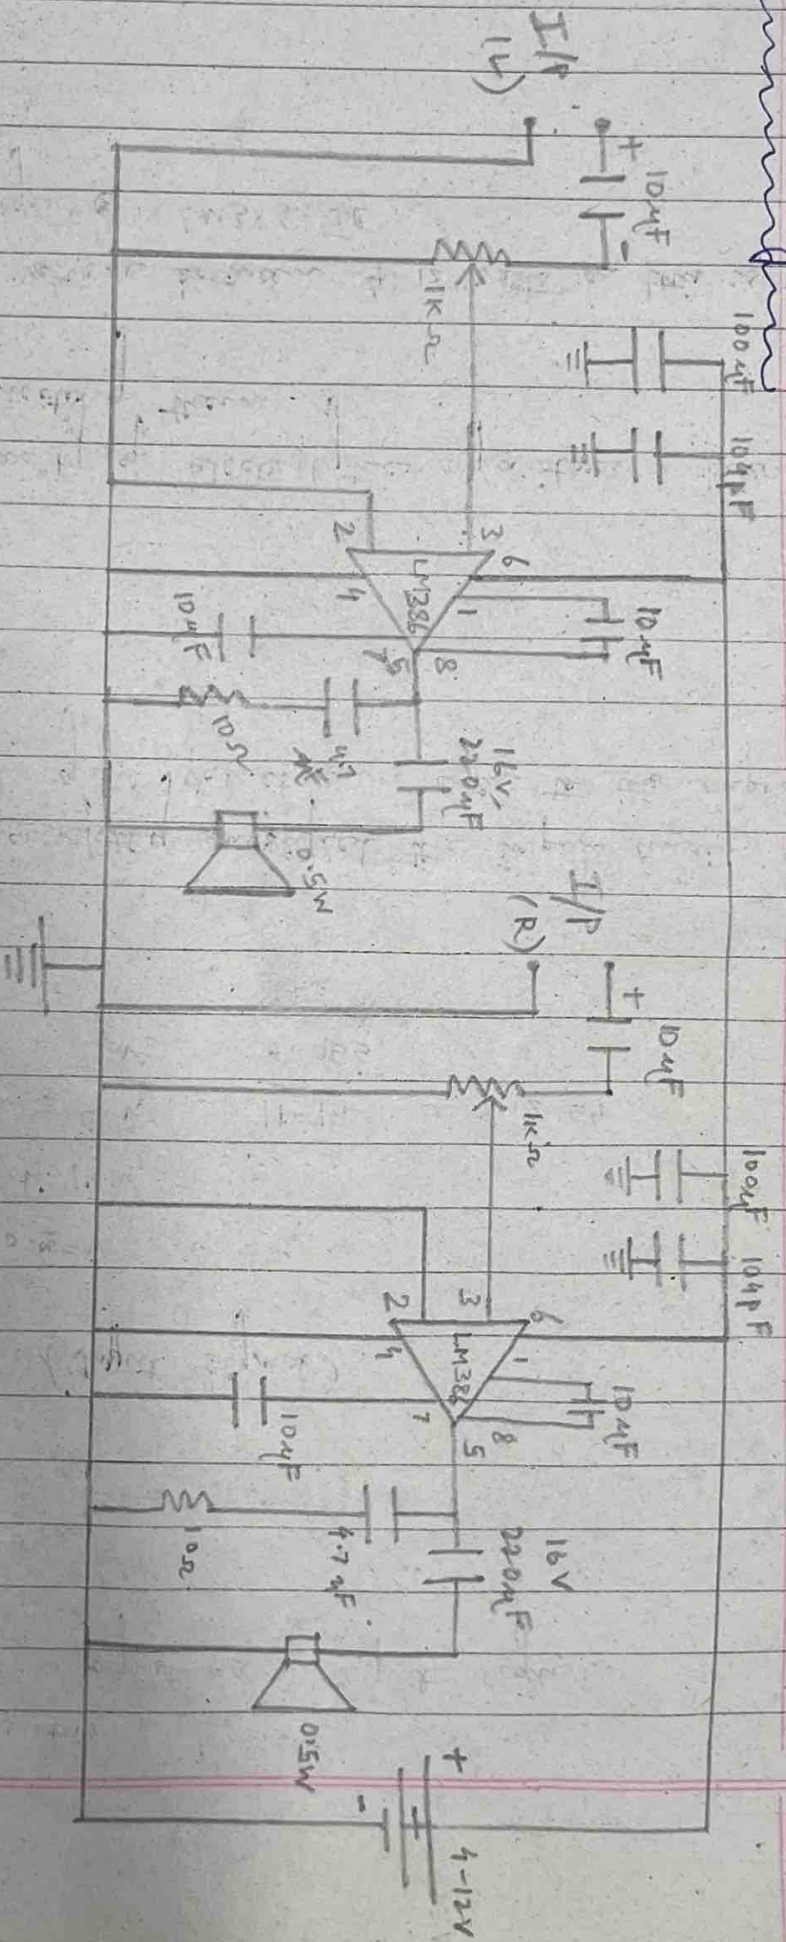 I/P
(L)
+
10μF
-
1KΩ
100μF
104pF
2
3
6
4
LM386
1
8
7
5
10μF
10μF
10Ω
4.7
16V,
220μF
0.5W
I/P
(R)
+
10μF
1KΩ
100μF
104pF
2
3
6
4
LM386
1
8
7
5
10μF
10μF
10Ω
4.7μF
16V
220μF
0.5W
+
-
4-12V